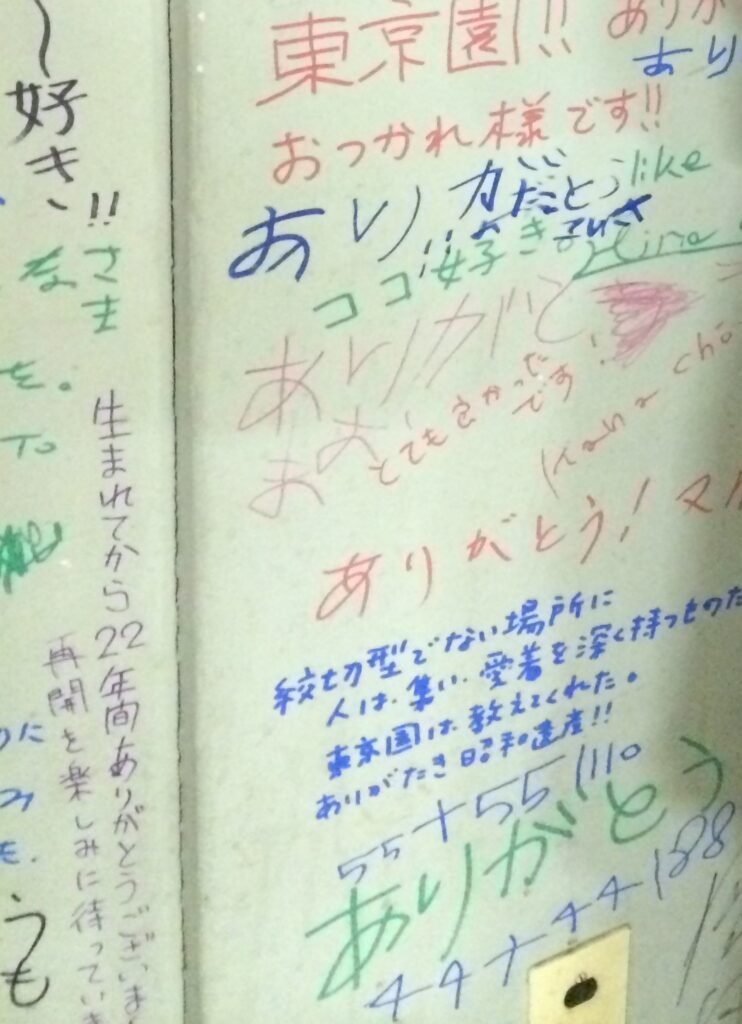 〜好き!!
さま
を。
To
生まれてから22年間ありがとうございま
再開を楽しみに待っていま
うも
東京園!!
おつかれ様です!!
ありがとう
like
!!
ココ好き
ありがと
とても良かった
です!
Kana
ありがとう!
紋切型でない場所に
人は集い、愛着を深く持つものた
東京園は教えてくれた。
ありがたき昭和遺産!!
55+55 110
ありがとう
44+44 88